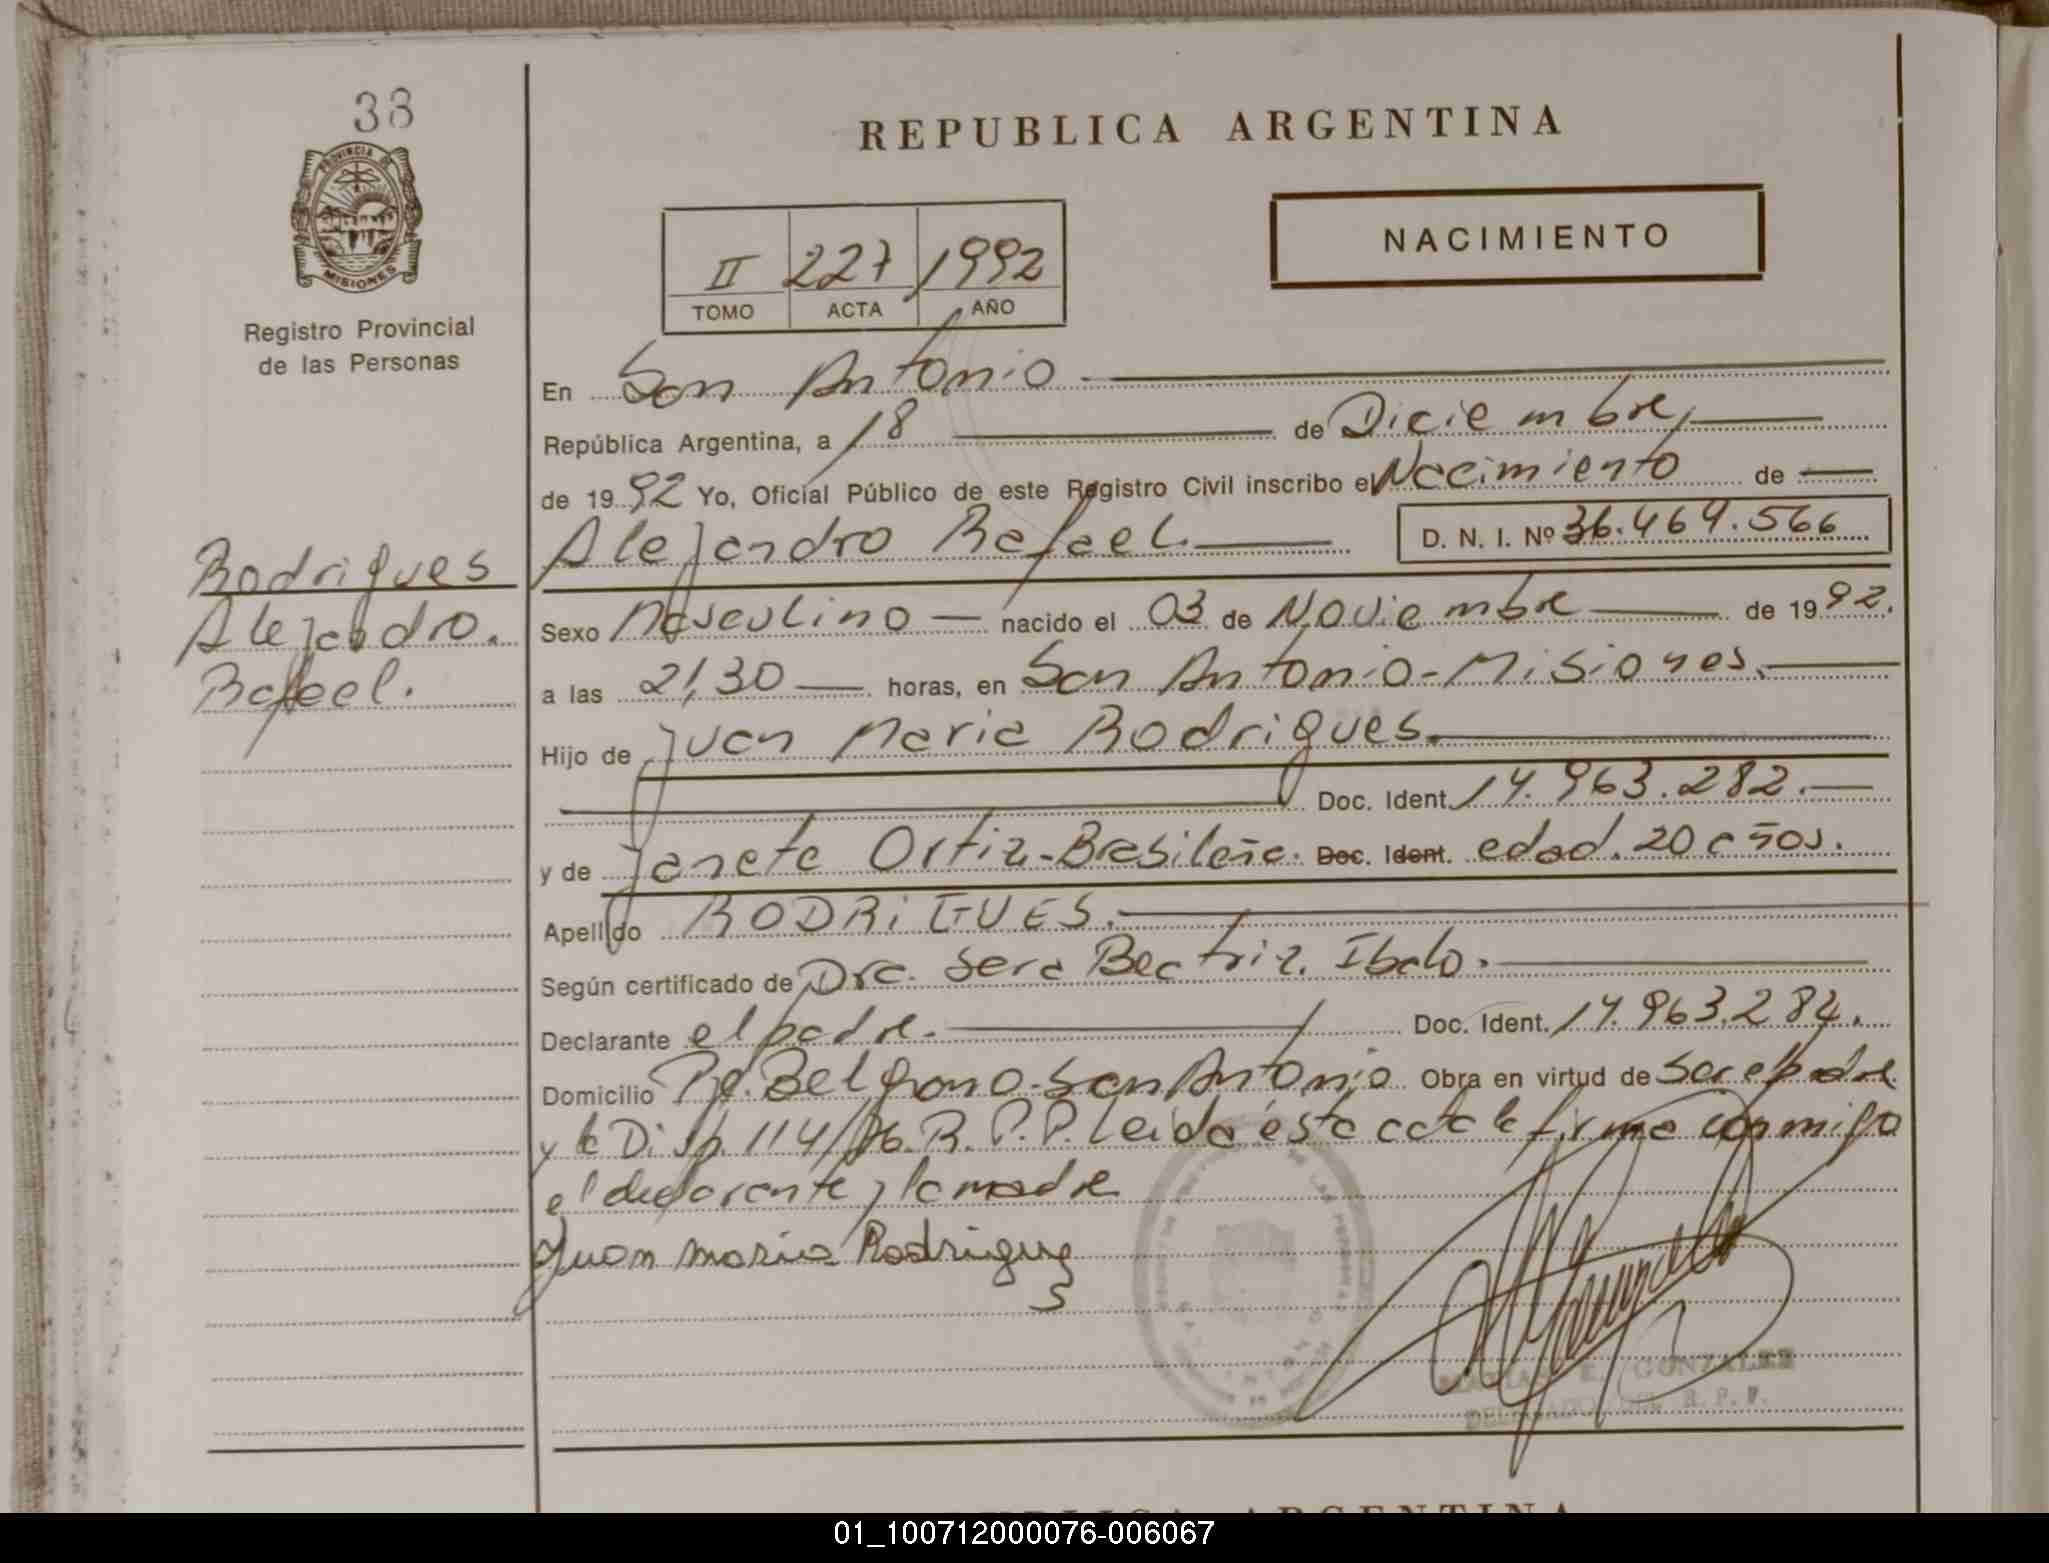 33
PROVINCIA DE
MISIONES
Registro Provincial
de las Personas
REPUBLICA ARGENTINA
NACIMIENTO
II 227 1992
TOMO ACTA AÑO
En San Antonio
República Argentina, a 18 de Diciembre
de 1992 Yo, Oficial Público de este Registro Civil inscribo el Nacimiento de
Alejandro Rafael. D. N. I. Nº 36.464.566
Rodrigues
Alejandro.
Rafael.
Sexo Masculino nacido el 03 de Noviembre de 1992.
a las 21,30 horas, en San Antonio-Misiones.
Hijo de Juan Maria Rodrigues.
Doc. Ident. 14.963.282.
y de Janete Ortiz-Brasileña. Doc. Ident. edad. 20 años.
Apellido RODRIGUES.
Según certificado de Dra. Sara Beatriz. Ibalo.
Declarante el padre. Doc. Ident. 14.963.282.
Domicilio Pje. Belgrano-San Antonio Obra en virtud de ser el padre
y la Disp. 114/86. R.P.P. Leida ésta acta la firma conmigo
el declarante y la madre
Juan maria Rodrigues
E. GONZALEZ
R. P. P.
REPUBLICA ARGENTINA
01_100712000076-006067